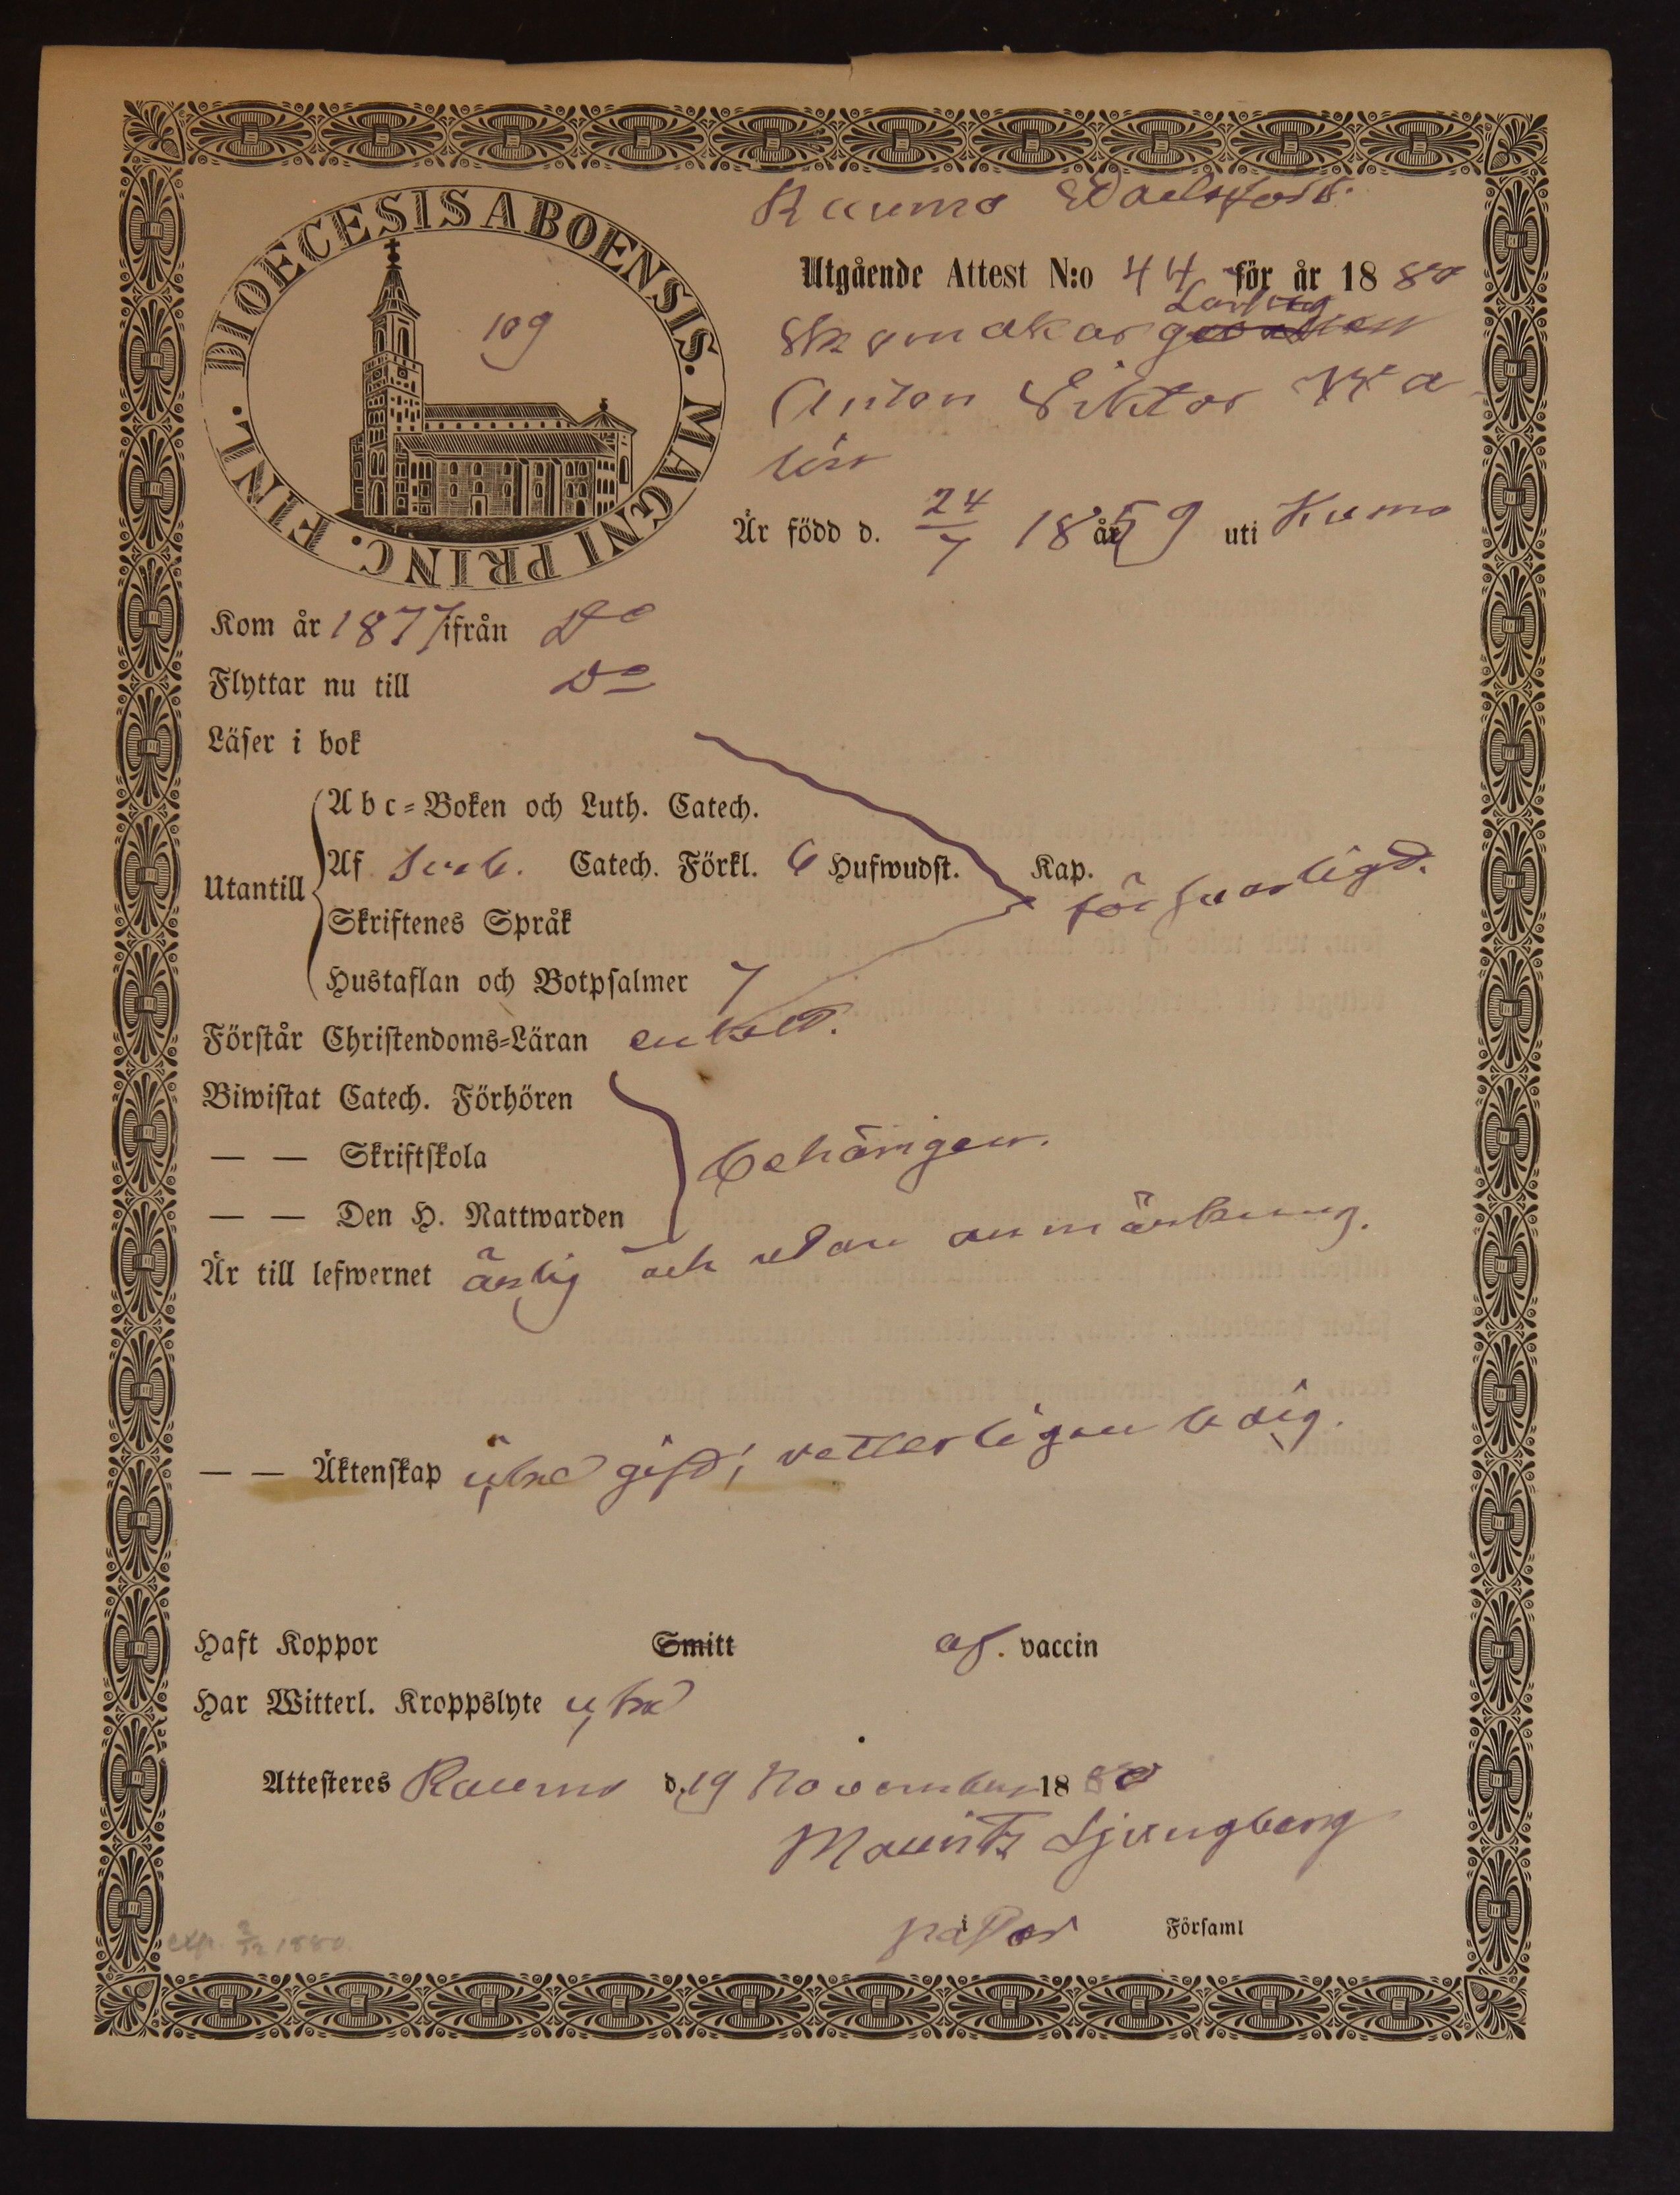 Raumo
DIOECESIS ABOENSIS. MAGNI PRINC. FINL.
109
Utgående Attest N:o 44 för år 1880
Lärling
Skomakar
Anton Viktor Wa-
lén
Är född d. 24/7 1859 år uti Kumo
Kom år 1877 ifrån Do
Flyttar nu till Do
Läser i bok
Utantill
Abc-Boken och Luth. Catech.
Af Sveb. Catech. Förkl. 6 Hufwudst. Kap. försvarligt.
Skriftenes Språk
Hustaflan och Botpsalmer 7
Förstår Christendoms-Läran enkelt.
Biwistat Catech. Förhören
— — Skriftskola behörigen.
— — Den H. Nattwarden
Är till lefwernet ärlig och utan anmärkning.
— — Äktenskap icke gift, vetterligen ledig.
Haft Koppor Smitt af. vaccin
Har Witterl. Kroppslyte icke
Attesteres Raumo d. 19 November 1880
Mauritz Ljungberg
pastor i Församl
exp. 3/12 1880.